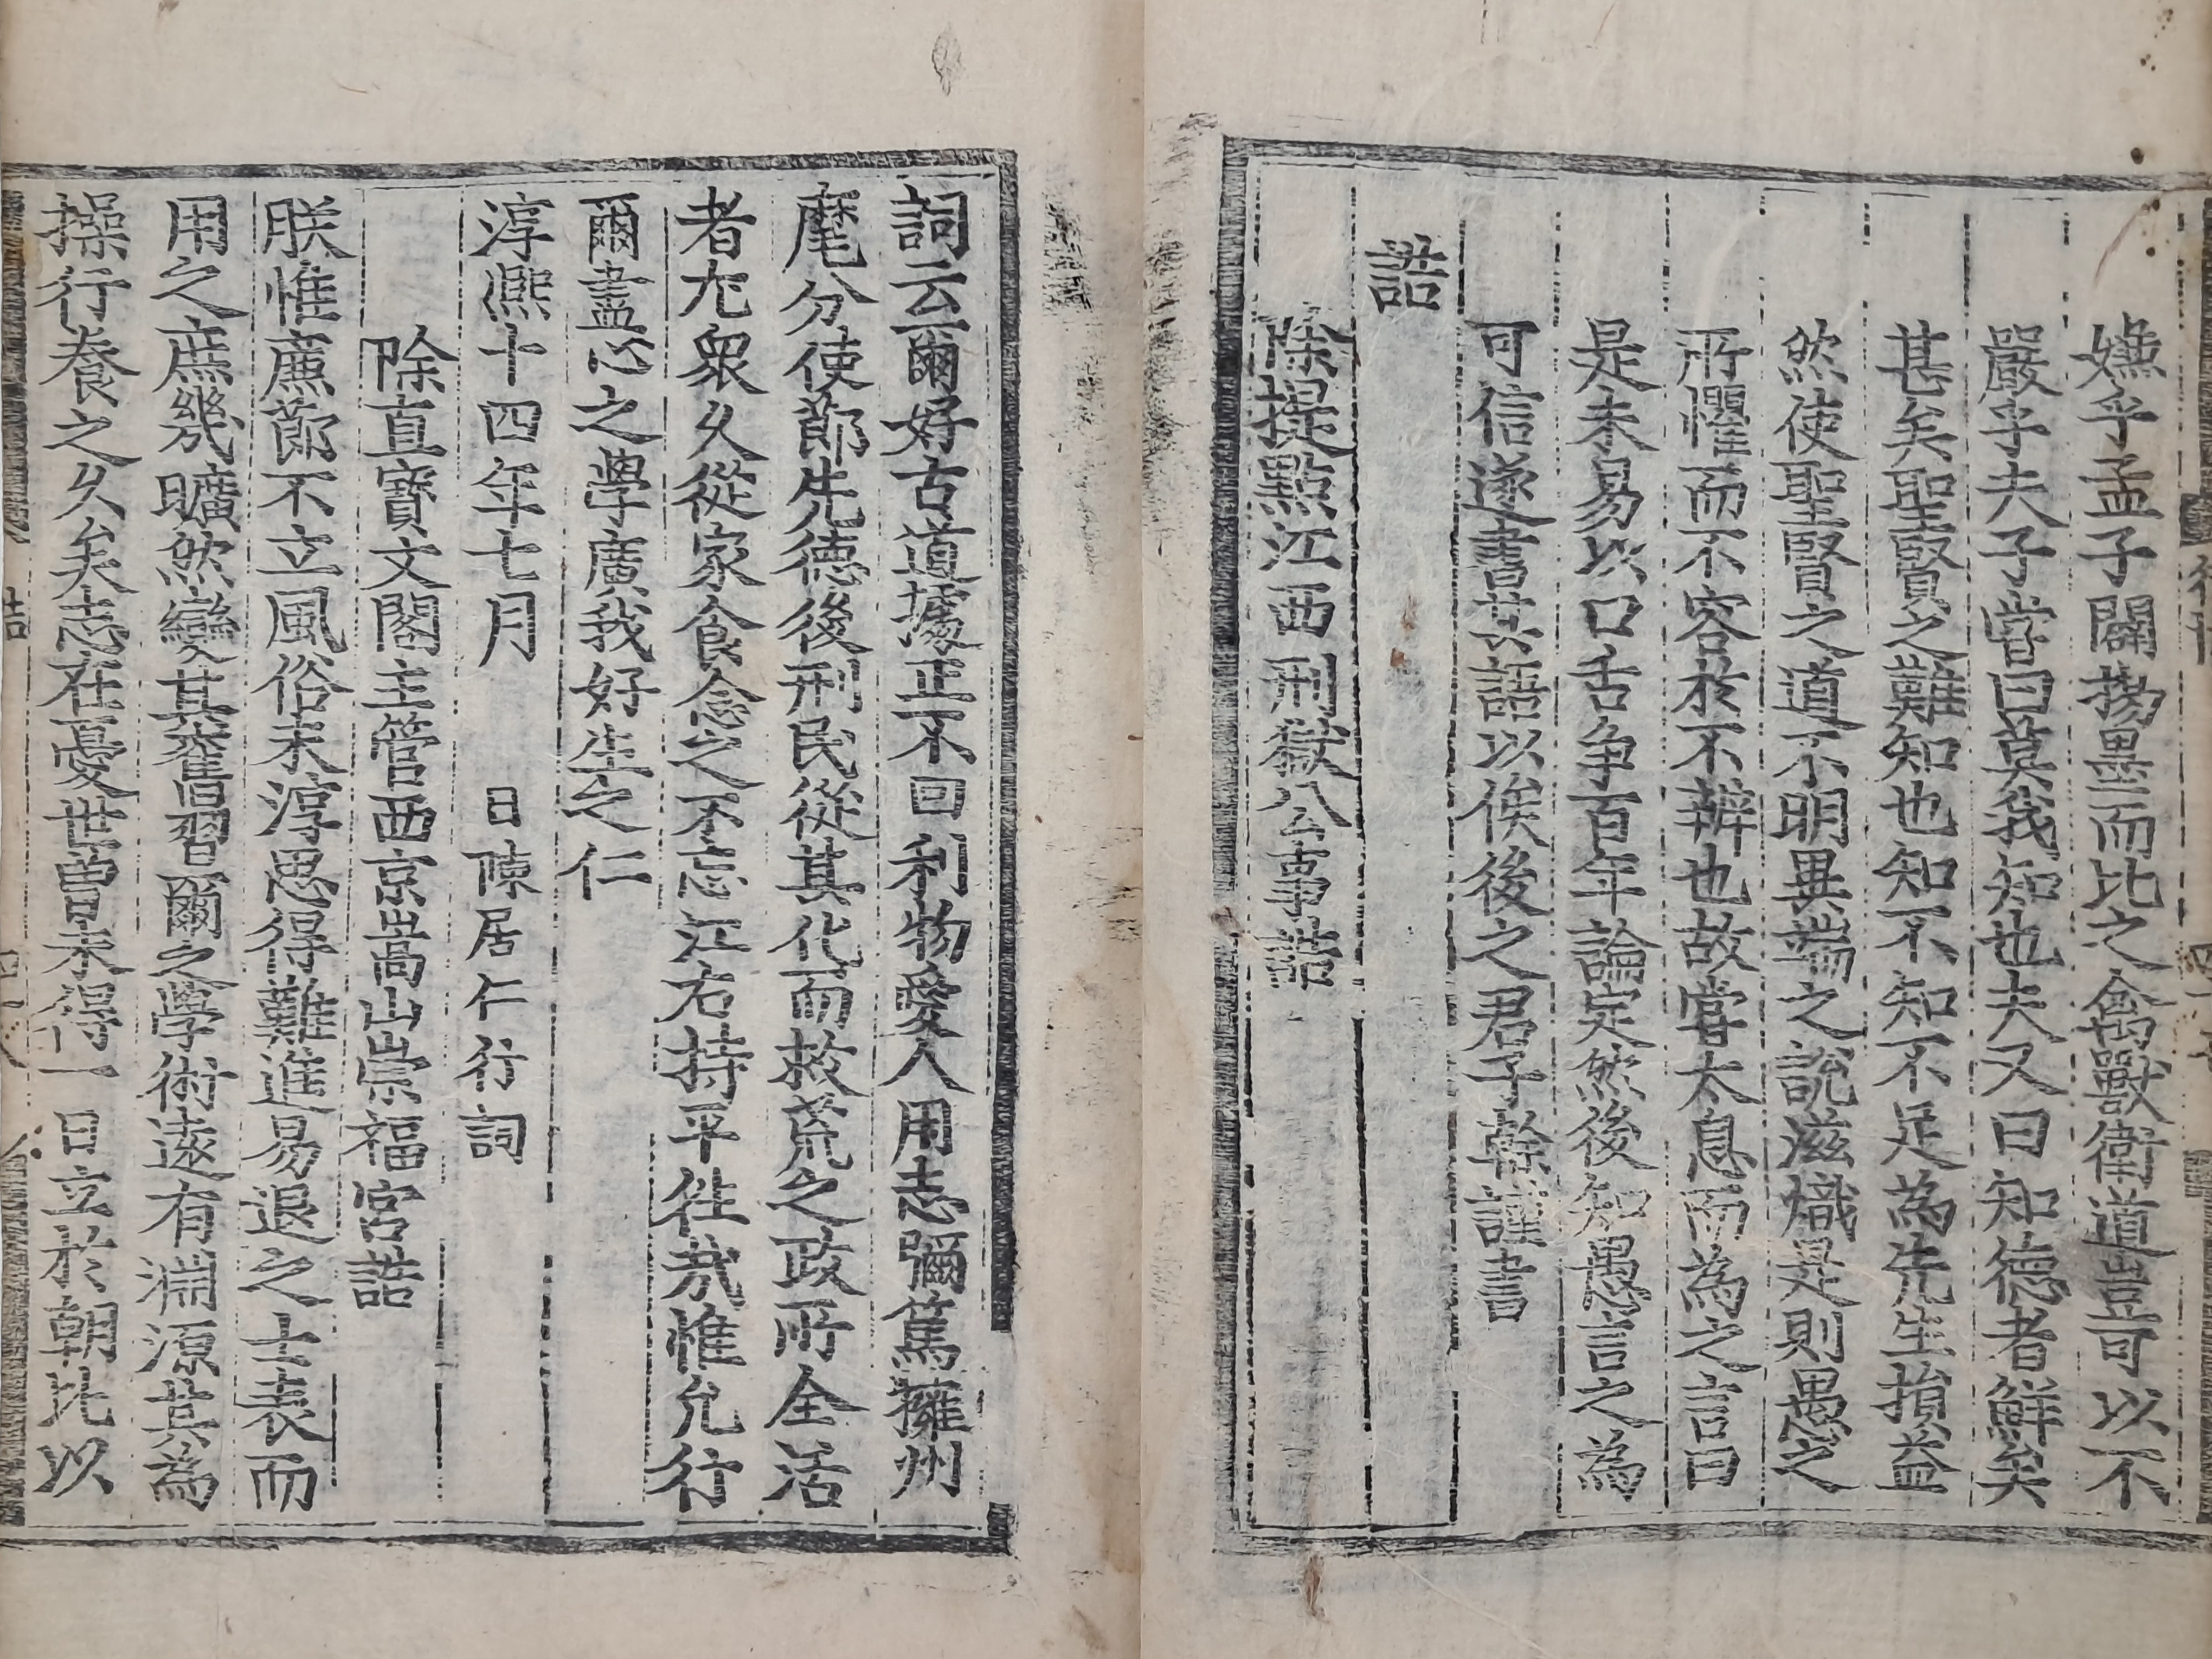 嫌乎孟子闢楊墨而比之禽獸衛道豈可以不
嚴乎夫子嘗曰莫我知也夫又曰知德者鮮矣
甚矣聖賢之難知也知不知不足為先生損益
然使聖賢之道不明異端之說滋熾是則愚之
所懼而不容於不辨也故嘗太息而為之言曰
是未易以口舌爭百年論定然後知愚言之為
可信遂書其語以俟後之君子幹謹書
誥
除提點江西刑獄公事誥
詞云爾好古道據正不回利物愛人用志彌篤擁州
麾分使節先德後刑民從其化而救荒之政所全活
者尤衆久從家食念之不忘江右持平往哉維允行
爾盡心之學廣我好生之仁
淳熙十四年七月　日陳居仁行詞
除直寶文閣主管西京嵩山崇福宮誥
朕惟廉節不立風俗未淳思得難進易退之士表而
用之庶幾曠然變其舊習爾之學術淺有淵源其為
操行養之久矣志在愛君